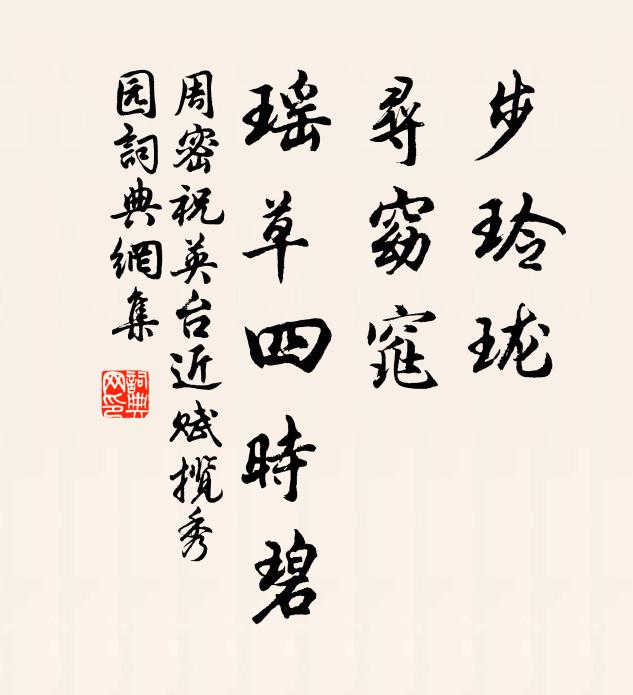 步玲珑
尋窈窕
瑶草四時碧
周密祝英台近赋攬秀
园詞典網集
詞典网印